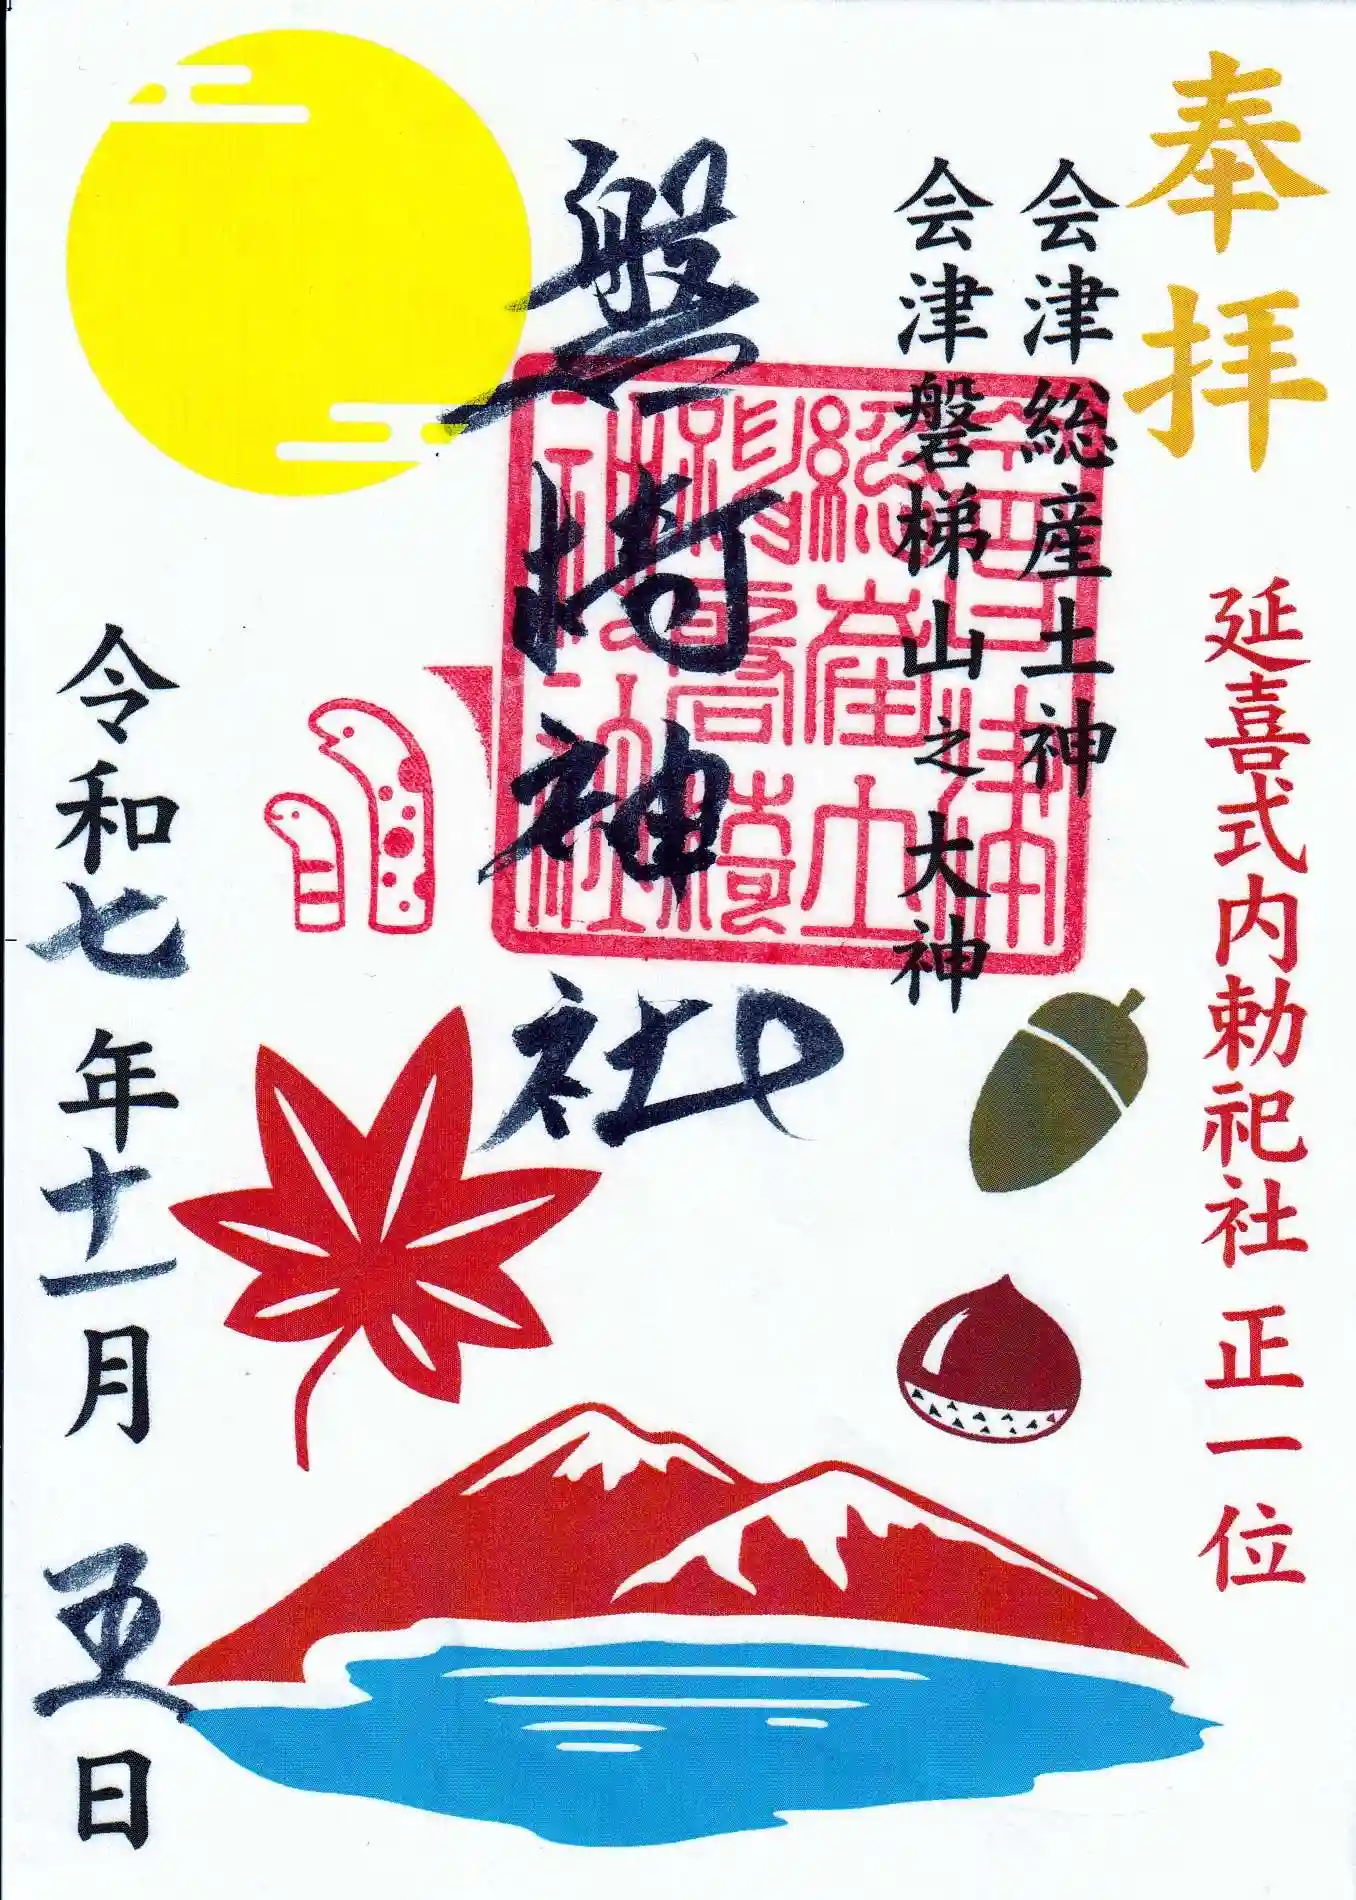 奉拝
延喜式内勅祀社 正一位
会津総産土神
会津磐梯山之大神
磐椅神社
令和七年十一月五日